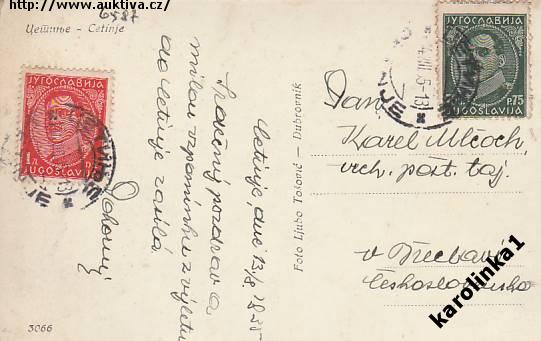 http://www.auktiva.cz/
6587
Цетиње - Cetinje
ЈУГОСЛАВИЈА
1 Д.
JUGOSLAVIJA
ЈУГОСЛАВИЈА
P. 75
JUGOSLAVIJA
Cetinje, dne 13/8
Srdečný pozdrav a
milou vzpomínku z výletu
do Cetinje zasílá
Foto Ljubo Tošović - Dubrovnik
Pan
Karel Mlčoch,
vrch. pošt. taj.
v Třebové
Československo
3066
karolinka1